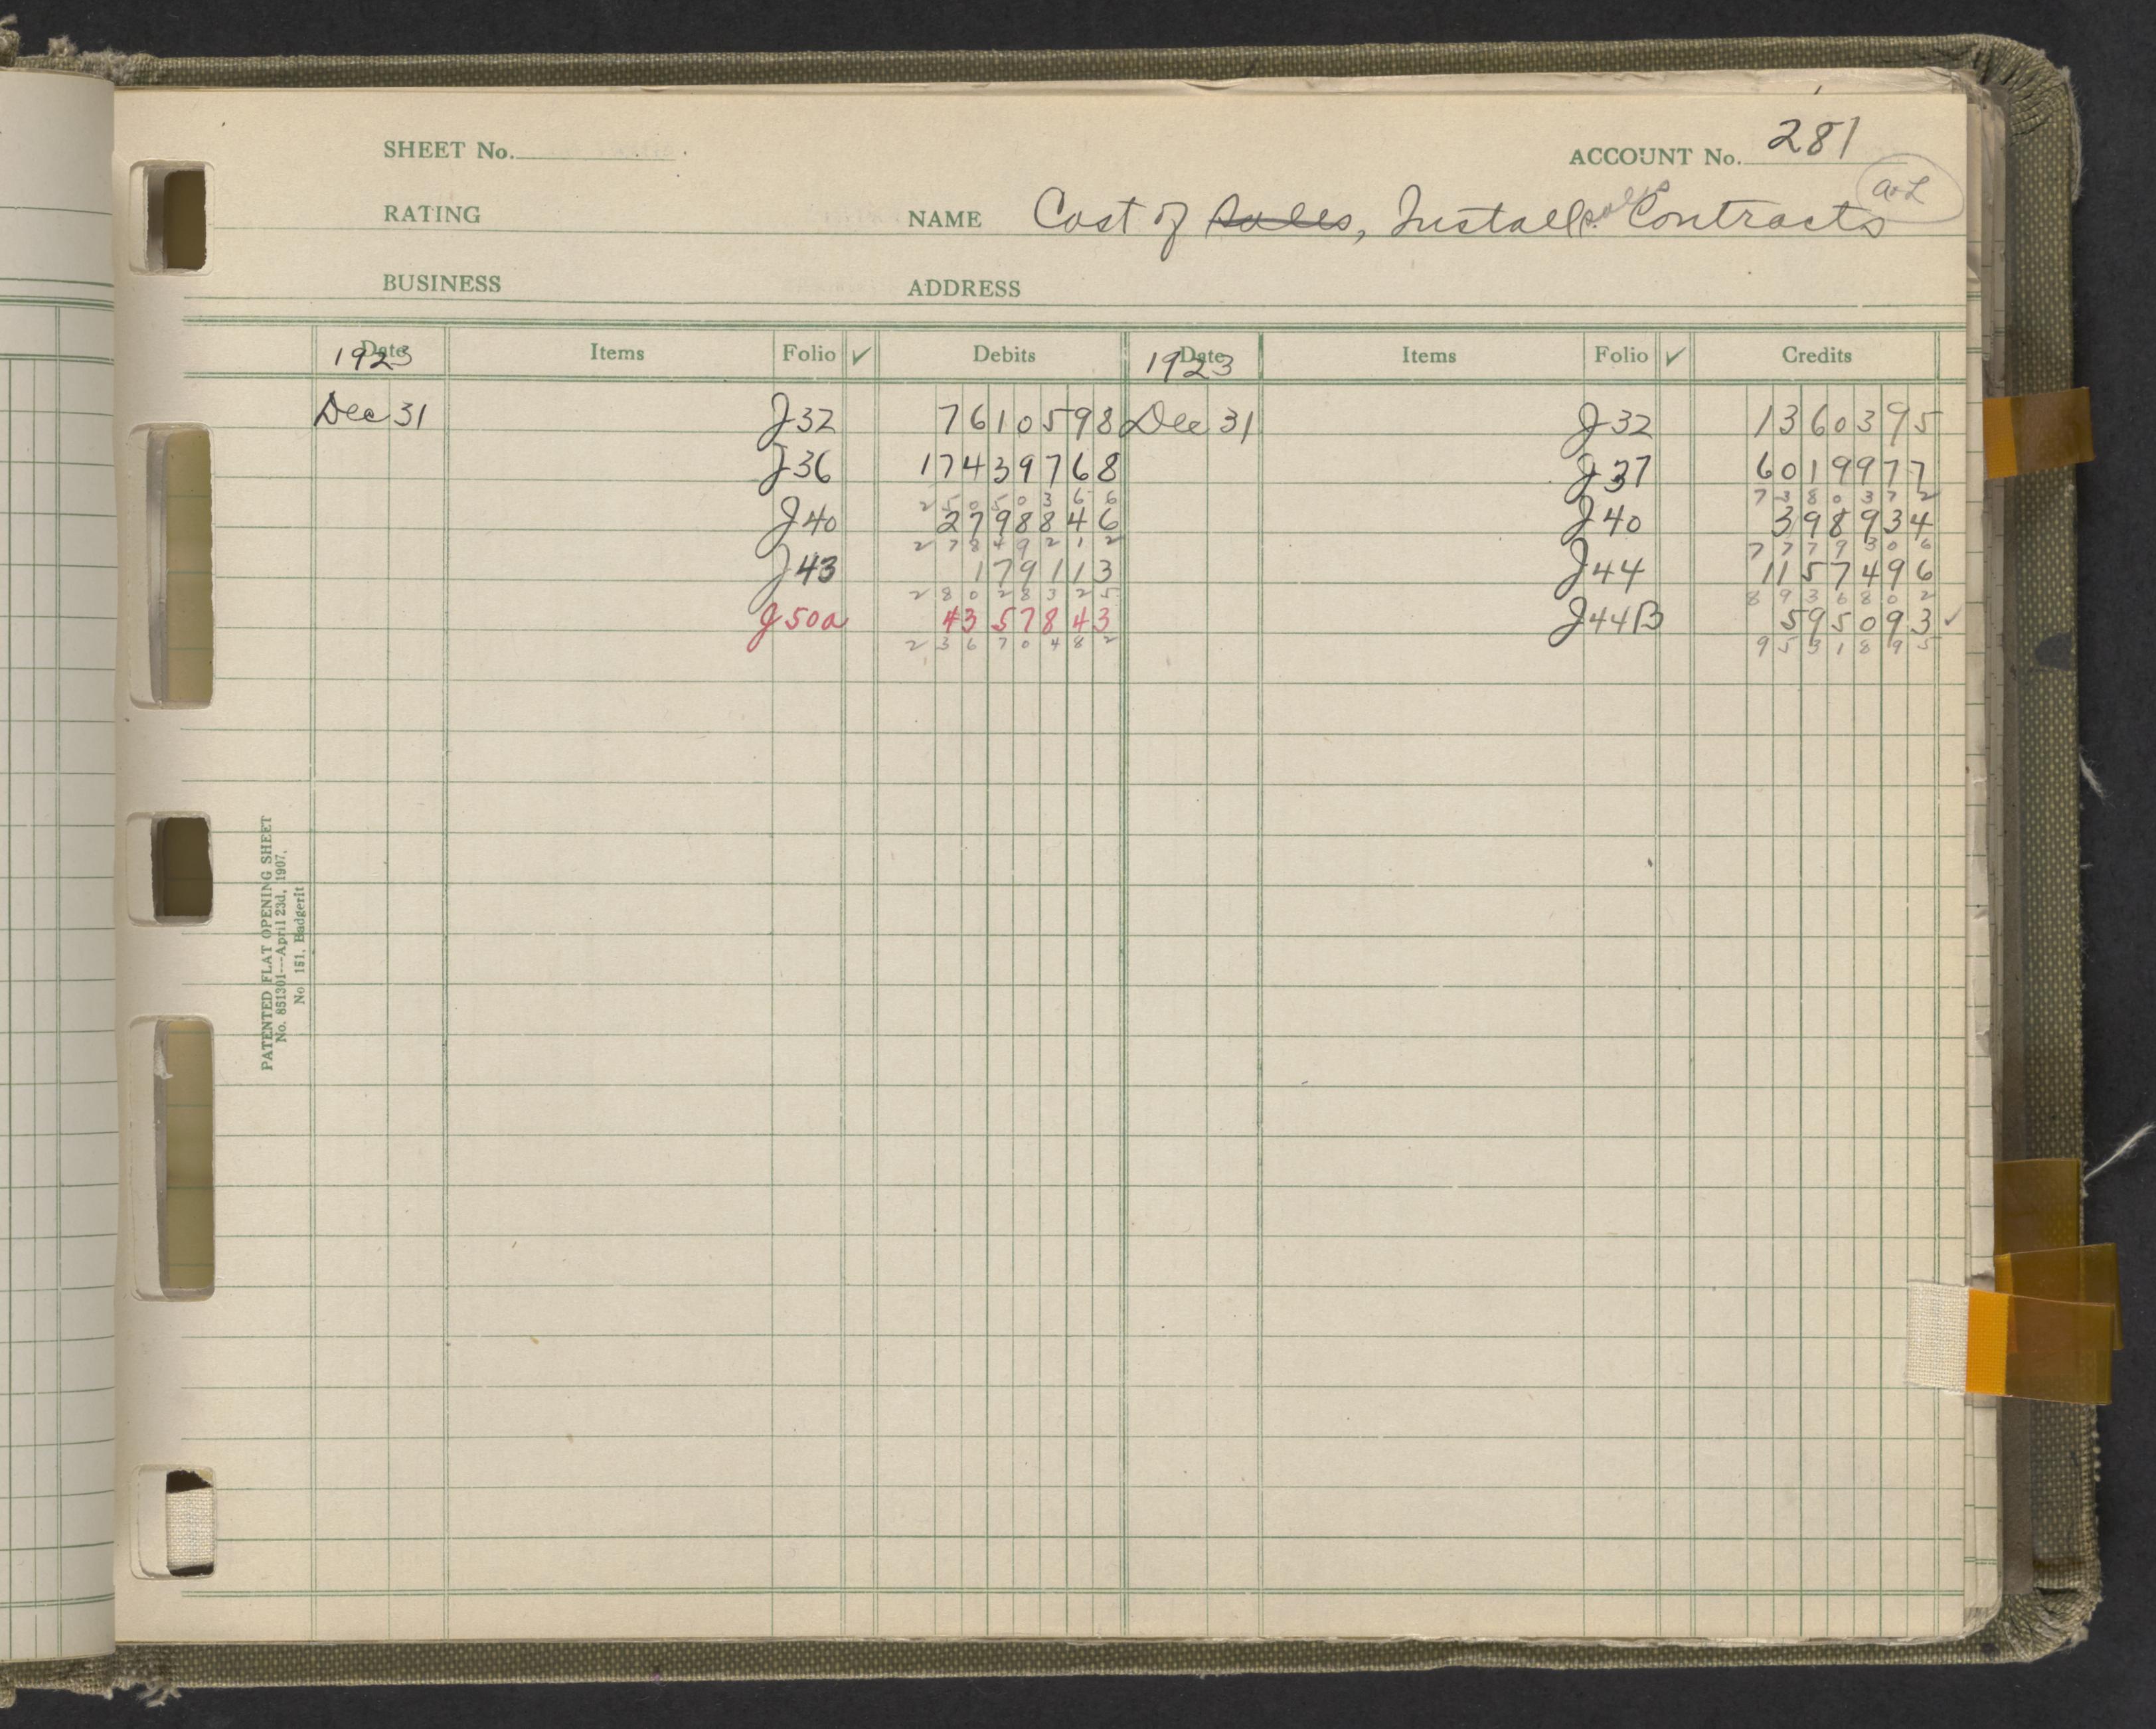 SHEET No. ACCOUNT No. 281
a+L
RATING NAME Cost of sales, Install. sales Contracts
BUSINESS ADDRESS
Date 1923 Items Folio ✓ Debits Date 1923 Items Folio ✓ Credits
Dec 31 J32 7610598 Dec 31 J32 1360395
J36 17439768 J37 6019977
25050366 7380372
J40 2798846 J40 398934
27849212 7779306
J43 179113 J44 1157496
28028325 8936802
J50a 4357843 J44B 595093 ✓
23670482 9531895
PATENTED FLAT OPENING SHEET
No. 851301---April 23d, 1907.
No 151, Badgerit